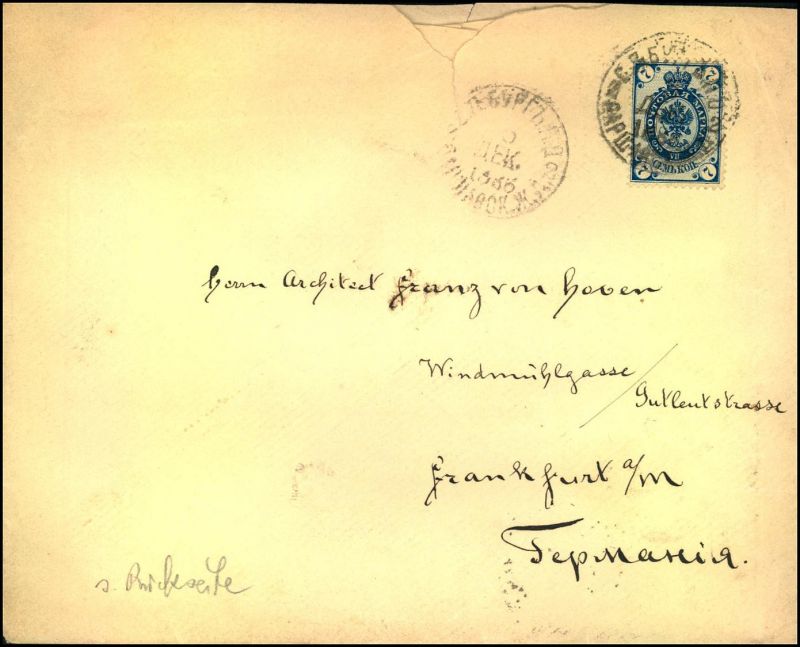 7 7
ПОЧТОВАЯ МАРКА
СЕМЬ КОП.
7 7
5
ДЕК.
1886
Herrn Architect Franz von Hoven
Windmühlgasse / Gutleutstrasse
Frankfurt a/M
Германія.
s. Rückseite